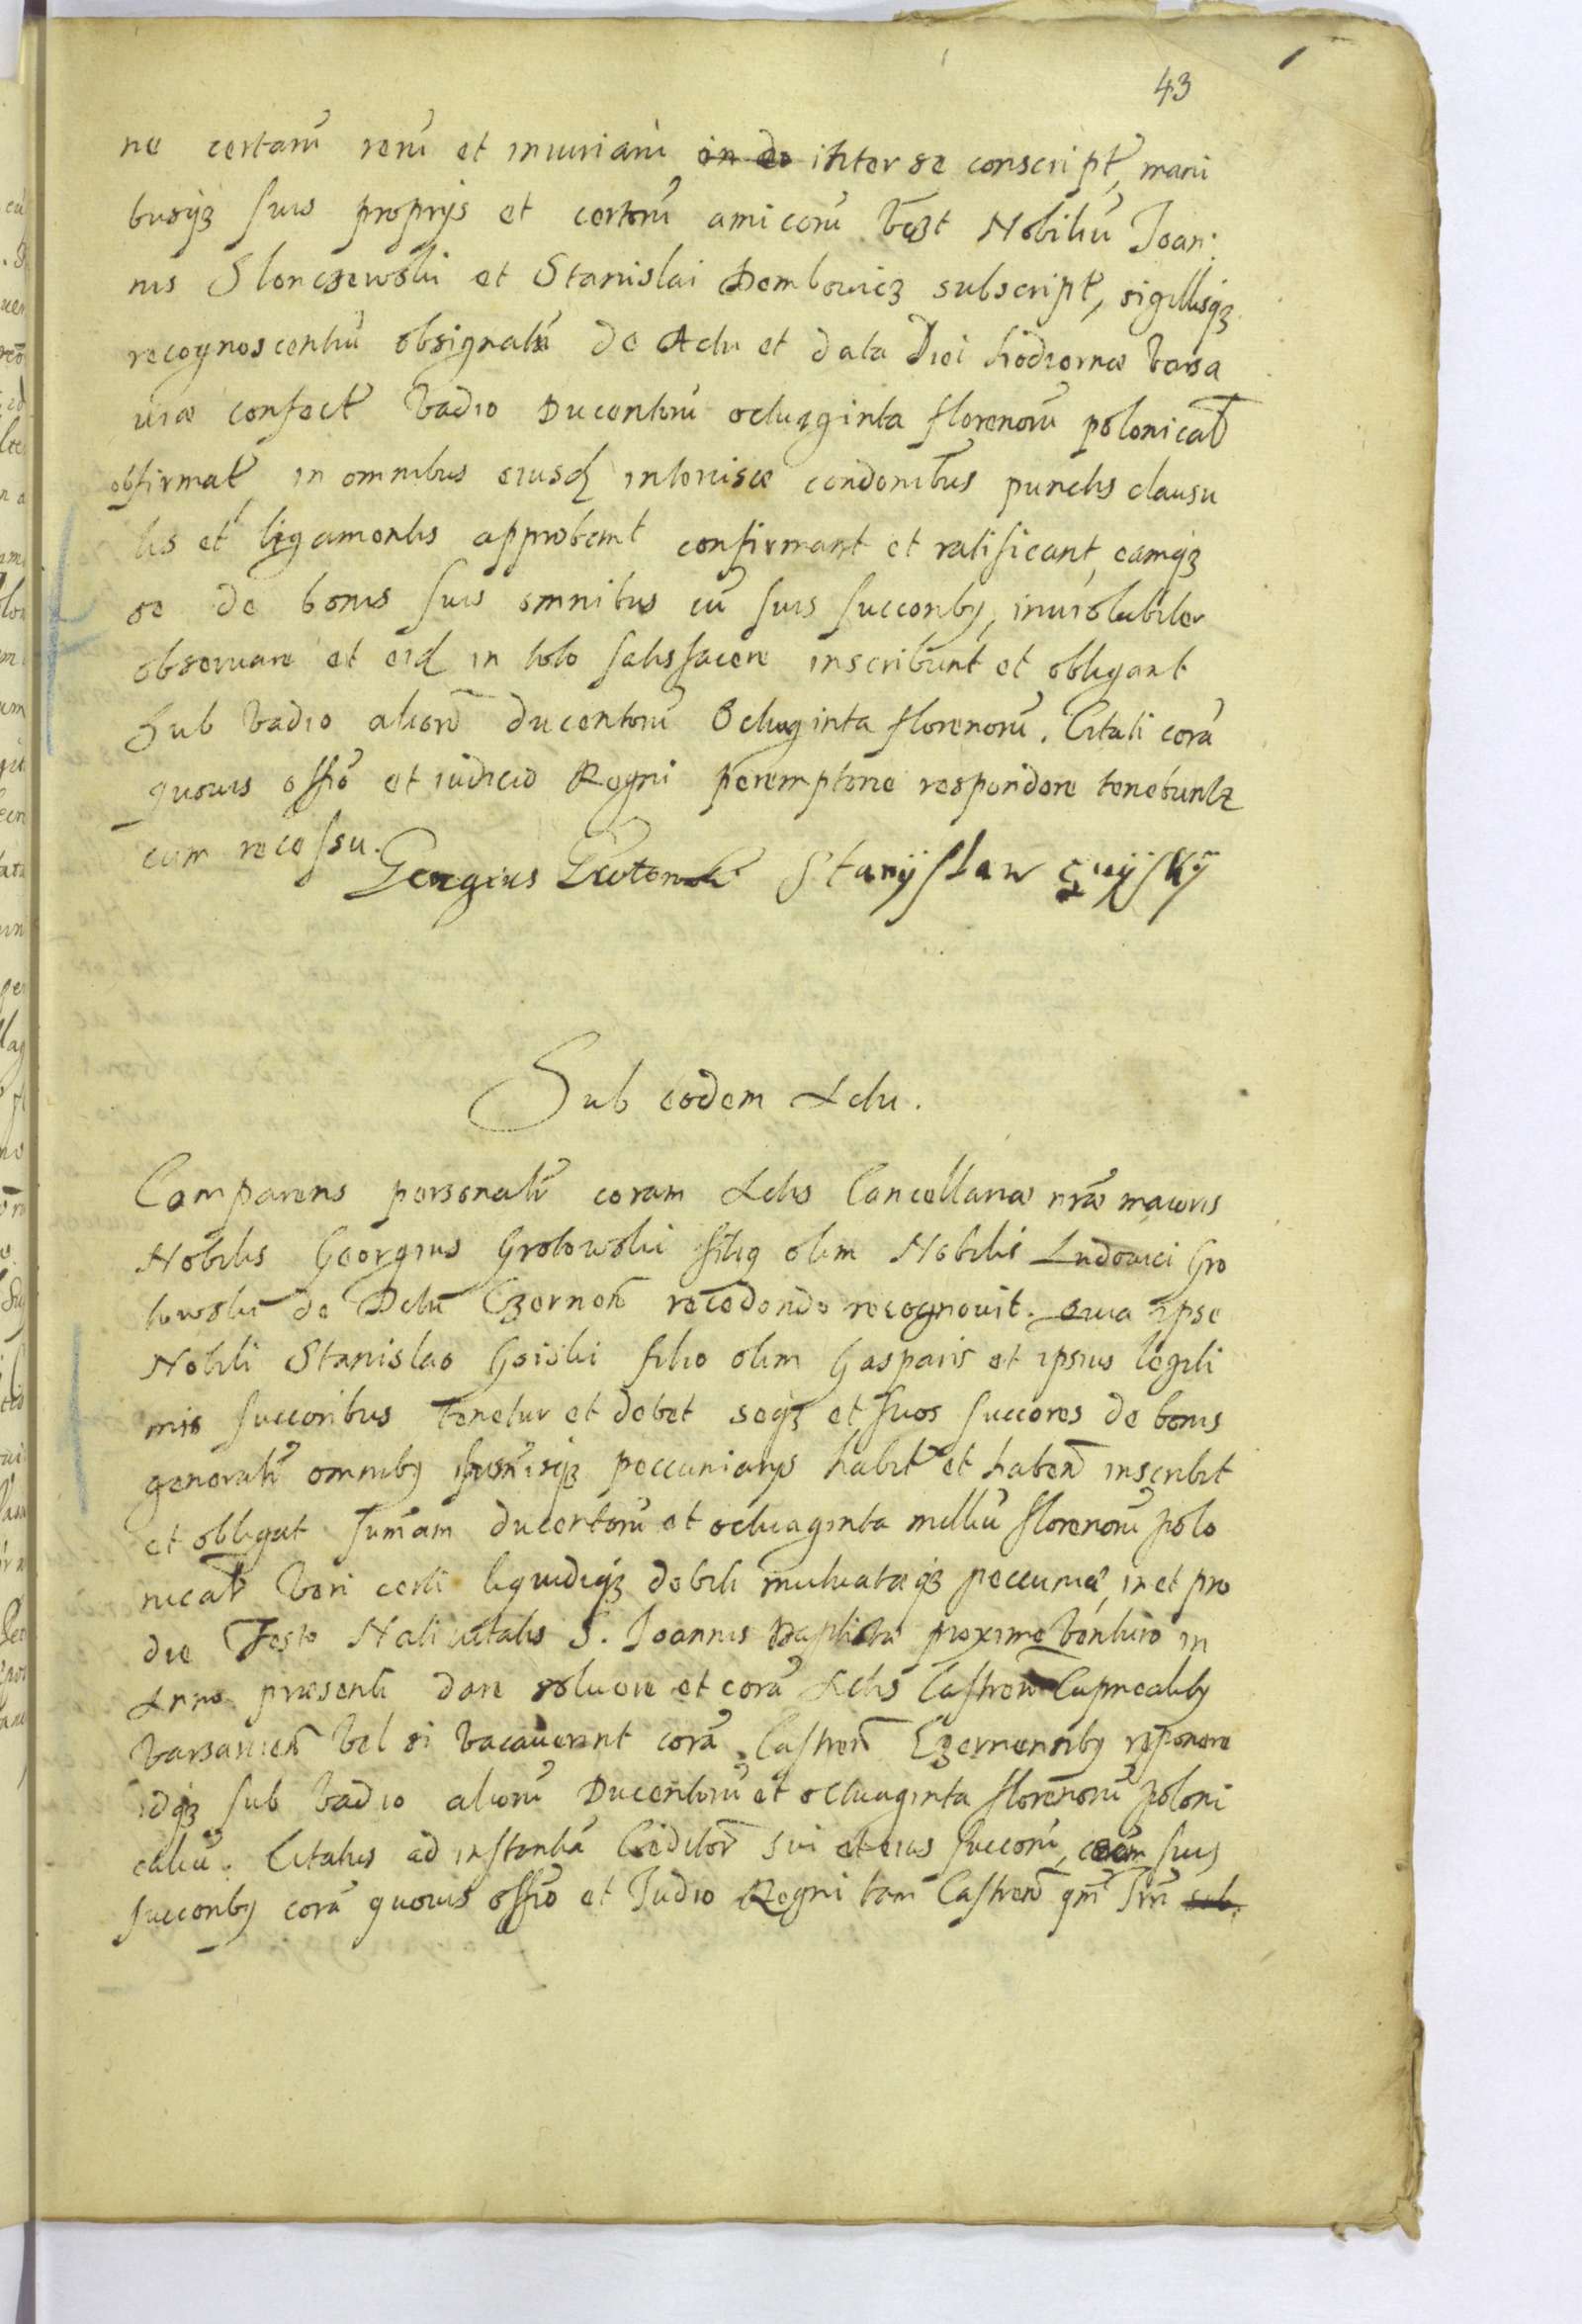 43
ne certarũ rerũ et iniuriarũ in eo inter se conscript, mani
busq3 suis proprijs et certorũ amicorũ vt3t Nobiliũ Joan:
nis Slonczewski et Stanislai Dembowicz subscript, sigillisq3
recognoscentiũ obsignatũ de Actu et data Diei hodiernæ Varsa
uiæ confect Vadio Ducentorũ octuaginta florenorũ polonical
obfirmat, in omnibus eiusd intouisæ condonibus punctis clausu
lis et ligamentis approbant confirmant et ratificant, eamq3
se de bonis suis omnibus cũ suis succorib9, inuiolabiler
obseruare et eid in toto satisfacere inscribunt et obligant
Sub Vadio aliorũ ducentorũ Octuaginta florenorũ. Citati corã
quouis offõ et iudicio Regni peremptorie respondere tenebuntr
cum recessu.
Georgius Grotowski Stanÿslaw gÿsKÿ
Sub eodem Actu.
Comparens personalr coram Actis Cancellariæ nræ maioris
Nobilis Georgius Grotowski fili9 olim Nobilis Ludouici Gro
towski de Dctu Czernen recedendo recognouit. Quia ipse
Nobili Stanislao Goiski filio olim Gasparis et ipsius legiti
mis succoribus tenetur et debet seq3 et suos succores de bonis
generalr omnib9 sum̃isq3 peccuniarijs habit et haben̄ inscribit
et obligat Sum̃am ducentorũ et octuaginta milliũ florenorũ polo
nicat Veri certi liquidiq3 debiti mutuatæq3 peccuniæ, in et pro
die Festo Natiuitatis S. Joannis Baptistæ proxime Venturo in
Anno præsenti dare soluere et corã Actis Castren Capitealib9
Varsauien Vel si Vacauerint corã Castren Czernensib9 reponere
idq3 sub Vadio aliorũ Ducentorũ et octuaginta florenorũ poloni
caliũ. Citatus ad instantiã Creditor sui et eius succorũ, cum suis
succorib9 corã quouis offõ et Judio Regni tam Castren qm̃ Trri sub